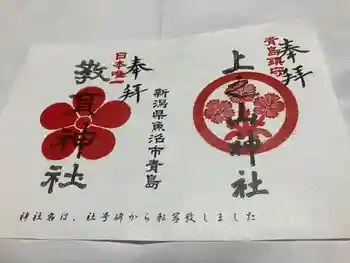 奉拝
青島鎮守
上之山神社
奉拝
日本唯一
新潟県魚沼市青島
教育神社
神社名は、社号碑から転写致しました